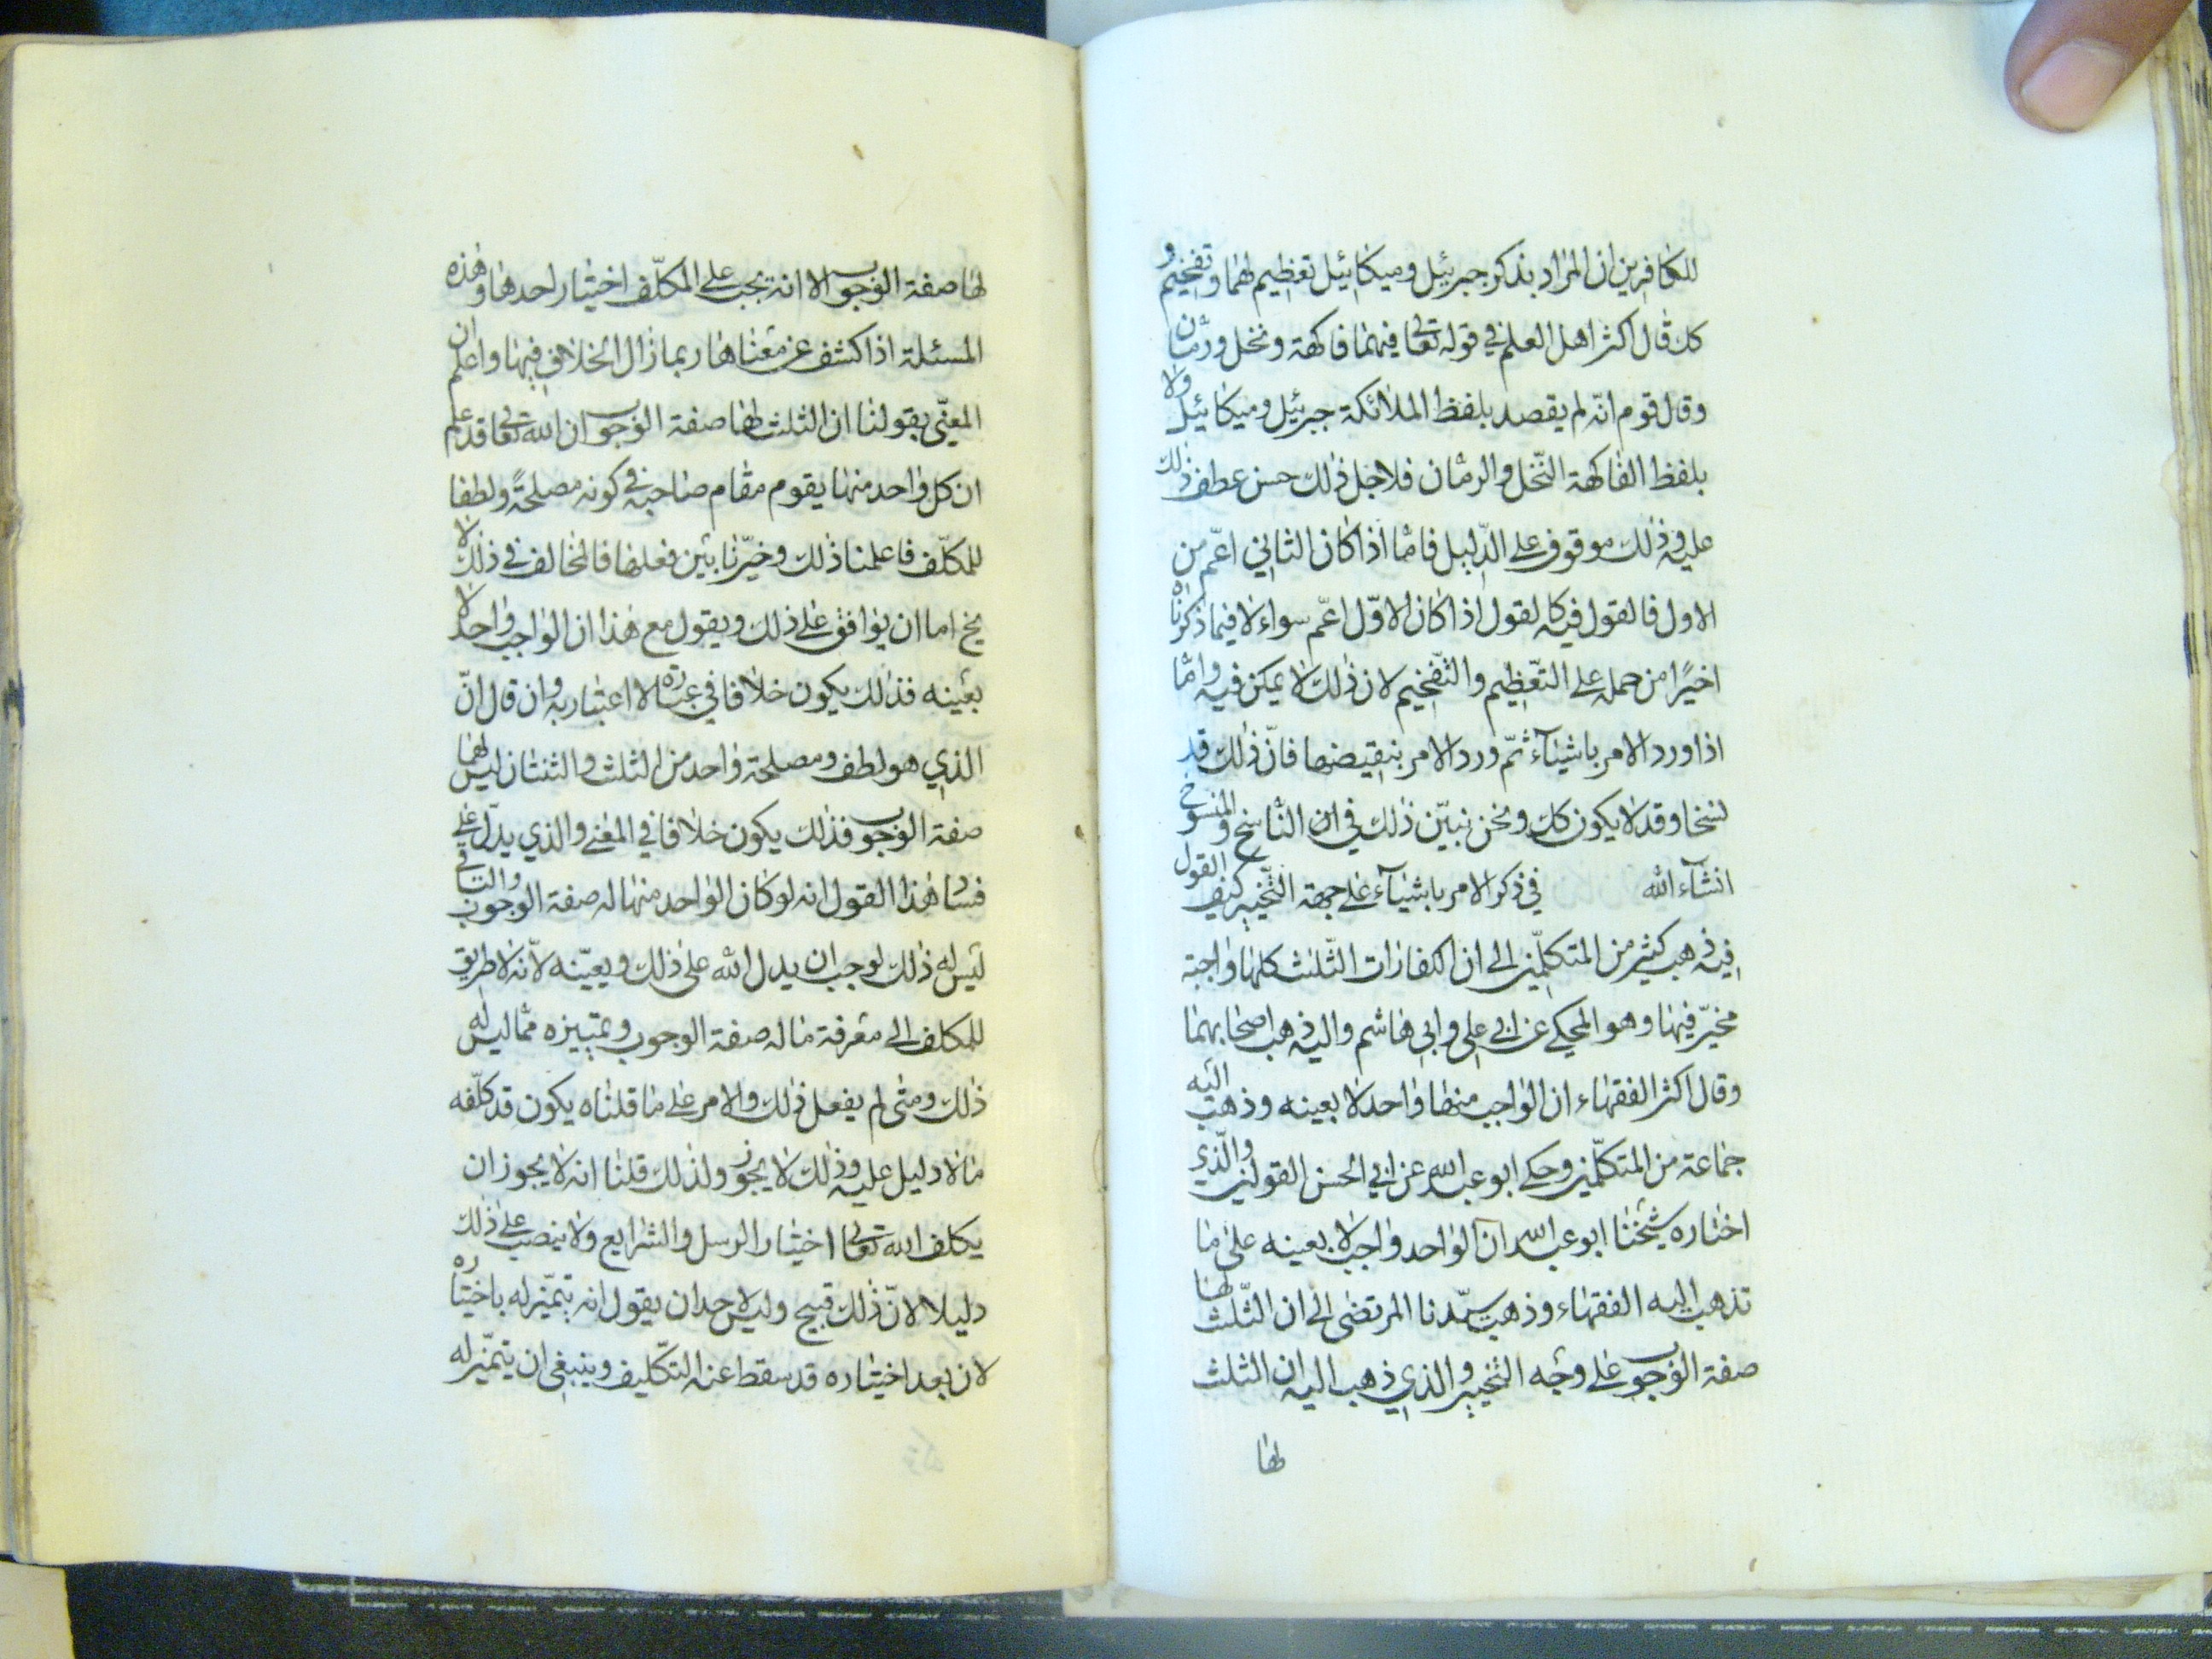 للكافرين ان المراد بذكر جبرئيل وميكائيل تعظيم لهما وتفخيم و
كك قال اكثر اهل العلم في قوله تعالى فيهما فاكهة ونخل ورمان
وقال قوم انه لم يقصد بلفظ الملائكة جبرئيل وميكائيل ولا
بلفظ الفاكهة النخل والرمان فلاجل ذلك حسن عطف ذلك
عليه وذلك موقوف على الدليل فاما اذا كان الثاني اعم من
الاول فالقول فيه كالقول اذا كان الاول اعم سواء لا فيما ذكرناه
اخيرا من حمله على التعظيم والتفخيم لان ذلك لا يمكن فيه واما
اذا ورد الامر باشياء ثم ورد الامر بنقيضها فان ذلك قد
نسخا وقد لا يكون كك ونحن نبين ذلك في ان الناسخ والمنسوخ
انشاء الله في ذكر الامر باشياء على جهة التخيير كيف القول
فيه ذهب كثير من المتكلمين الى ان الكفارات الثلث كلها واجبة
مخير فيها وهو المحكي عن ابي علي وابي هاشم واليه ذهب اصحابهما
وقال اكثر الفقهاء ان الواجب منها واحد لا بعينه وذهب اليه
جماعة من المتكلمين وحكى ابو عبد الله عن ابي الحسن القولين والذي
اختاره شيخنا ابو عبد الله ان الواحد واجب لا بعينه على ما
تذهب اليه الفقهاء وذهب سيدنا المرتضى الى ان الثلث لها
صفة الوجوب على وجه التخيير والذي ذهب اليه ان الثلث
لها
لها صفة الوجوب الا انه يجب على المكلف اختيار احدها وهذه
المسئلة اذا كشف عن معناها ربما زال الخلاف فيها واعلم ان
المعني بقولنا ان الثلث لها صفة الوجوب ان الله تعالى قد علم
ان كل واحد منها يقوم مقام صاحبه في كونه مصلحة ولطفا
للمكلف فاعلمنا ذلك وخيرنا بين فعلها فالمخالف في ذلك لا
يخ اما ان يوافق على ذلك ويقول مع هذا ان الواجب واحد لا
بعينه فذلك يكون خلافا في عبارة لا اعتبار به وان قال ان
الذي هو لطف ومصلحة واحد من الثلث والثنتان ليس لهما
صفة الوجوب فذلك يكون خلافا في المعنى والذي يدل على
فساد هذا القول انه لو كان الواحد منها له صفة الوجوب والباقي
ليس له ذلك لوجب ان يدل الله على ذلك ويعينه لانه لا طريق
للمكلف الى معرفة ما له صفة الوجوب وتمييزه مما ليس له
ذلك ومتى لم يفعل ذلك والامر على ما قلناه يكون قد كلفه
ما لا دليل عليه وذلك لا يجوز ولذلك قلنا انه لا يجوز ان
يكلف الله تعالى اختيار الرسل والشرايع ولا ينصب على ذلك
دليلا لان ذلك قبيح وليس لاحد ان يقول انه يتميز له باختياره
لان بعد اختياره قد سقط عنه التكليف وينبغي ان يتميز له